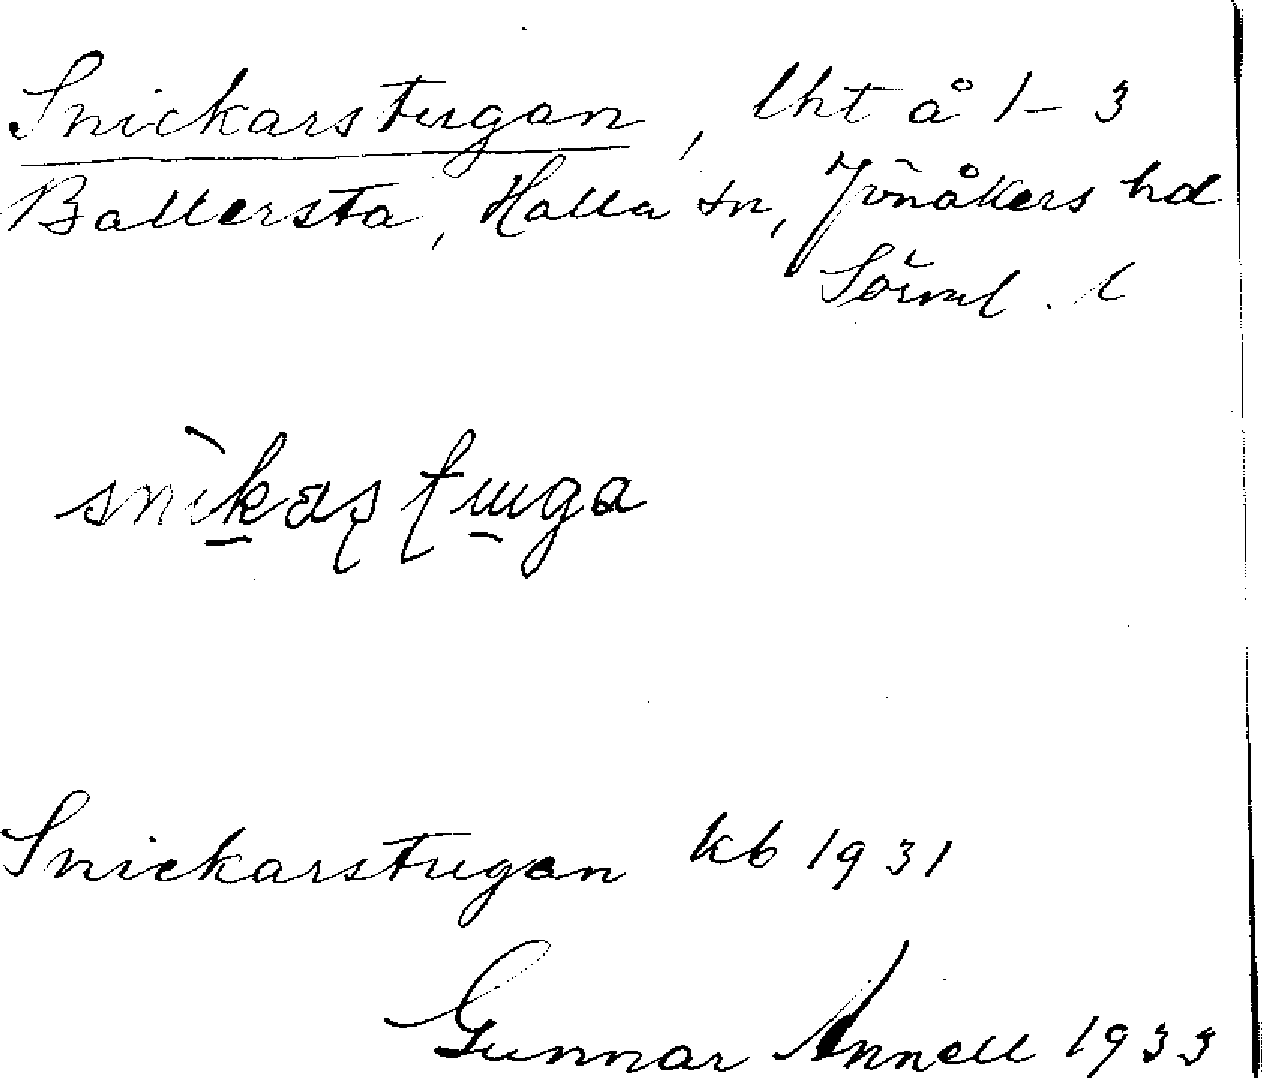 Snickarstugan, lht å 1-3
Ballersta, Halla sn, Jönåkers hd
Sörml. l
snìkas̩tuga
Snickarstugan kb 1931
Gunnar Annell 1933